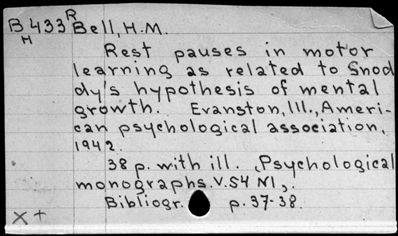 B433 R Bell, H.M.
H
Rest pauses in motor
learning as related to Snod
dy's hypothesis of mental
growth. Evanston, Ill., Ameri-
can psychological association,
1942.
38 p. with ill. (Psychological
monographs. V.54 N1),
Bibliogr. p. 37-38.
X+